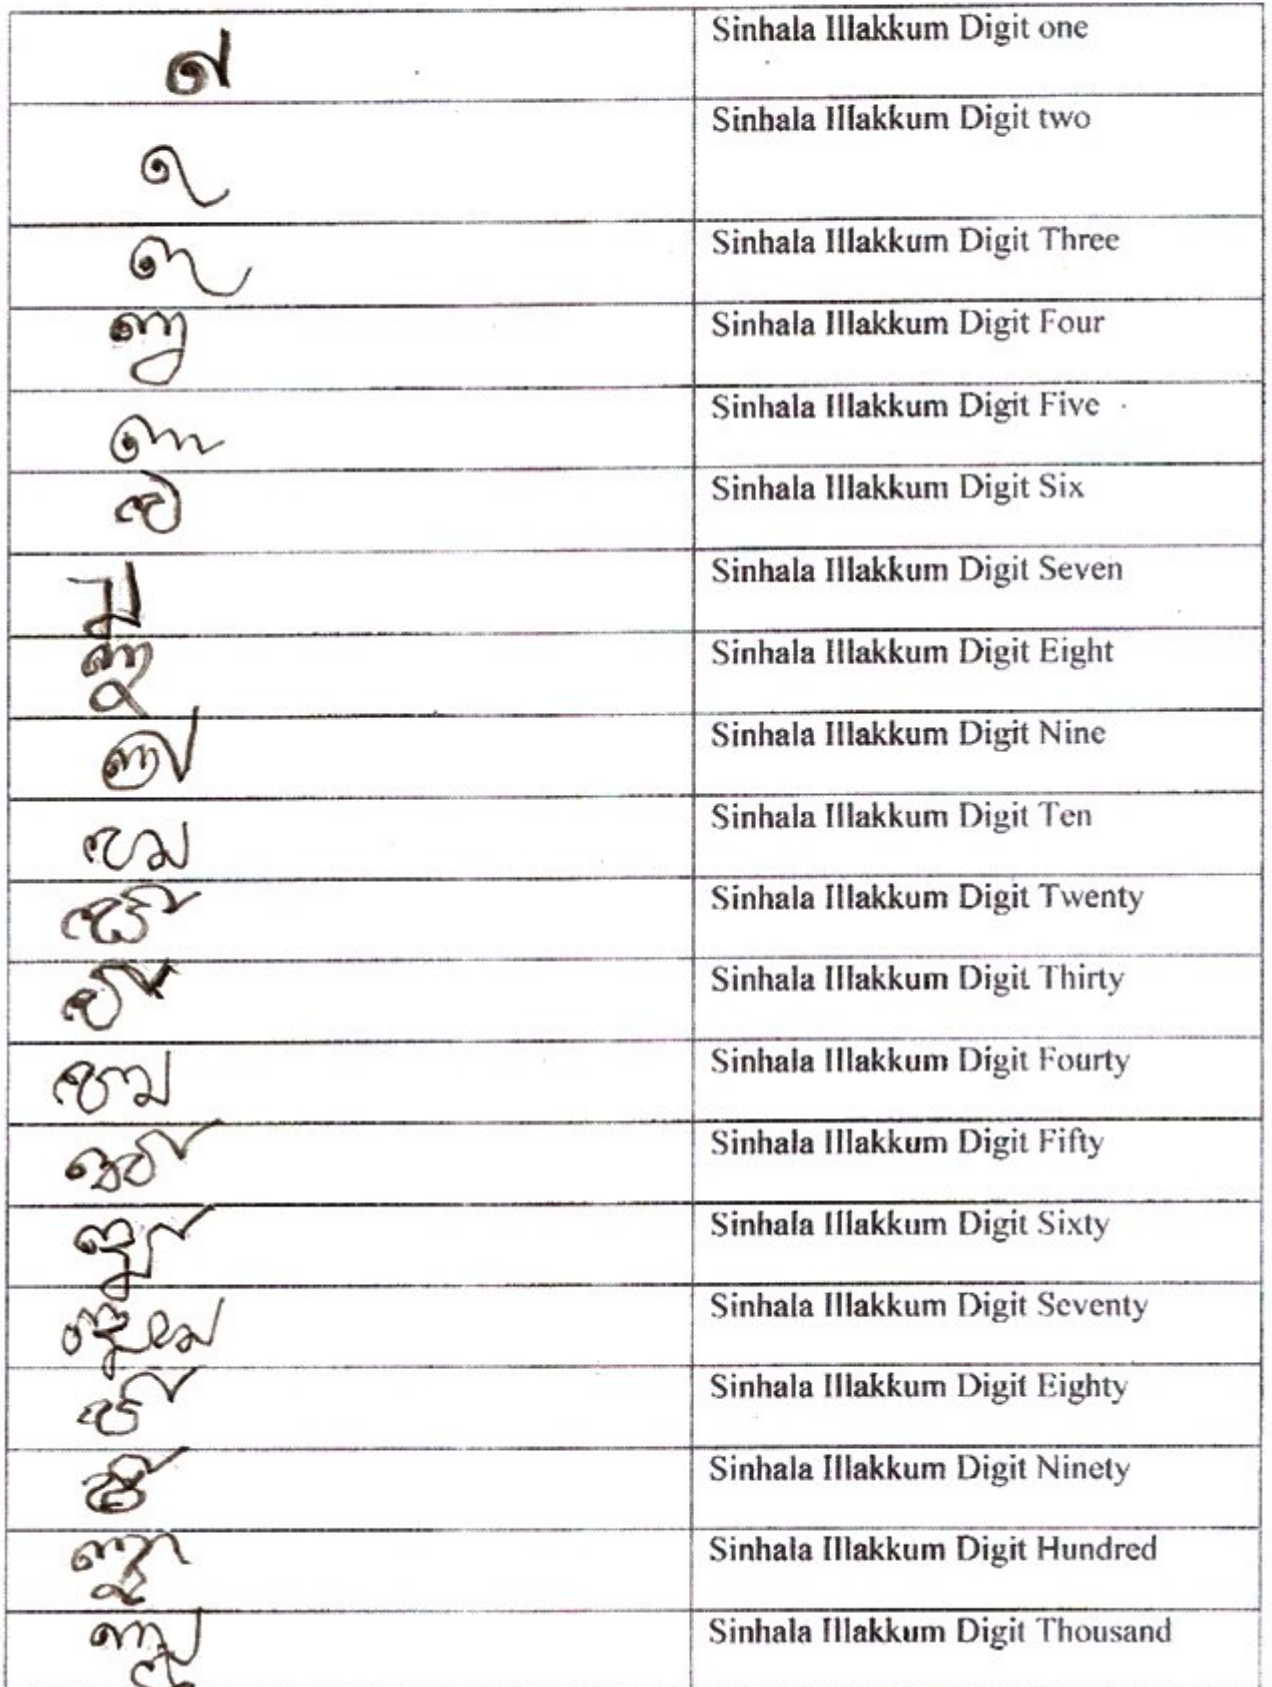 𑇡 Sinhala Illakkum Digit one
𑇢 Sinhala Illakkum Digit two
𑇣 Sinhala Illakkum Digit Three
𑇤 Sinhala Illakkum Digit Four
𑇥 Sinhala Illakkum Digit Five
𑇦 Sinhala Illakkum Digit Six
𑇧 Sinhala Illakkum Digit Seven
𑇨 Sinhala Illakkum Digit Eight
𑇩 Sinhala Illakkum Digit Nine
𑇪 Sinhala Illakkum Digit Ten
𑇫 Sinhala Illakkum Digit Twenty
𑇬 Sinhala Illakkum Digit Thirty
𑇭 Sinhala Illakkum Digit Fourty
𑇮 Sinhala Illakkum Digit Fifty
𑇯 Sinhala Illakkum Digit Sixty
𑇰 Sinhala Illakkum Digit Seventy
𑇱 Sinhala Illakkum Digit Eighty
𑇲 Sinhala Illakkum Digit Ninety
𑇳 Sinhala Illakkum Digit Hundred
𑇴 Sinhala Illakkum Digit Thousand